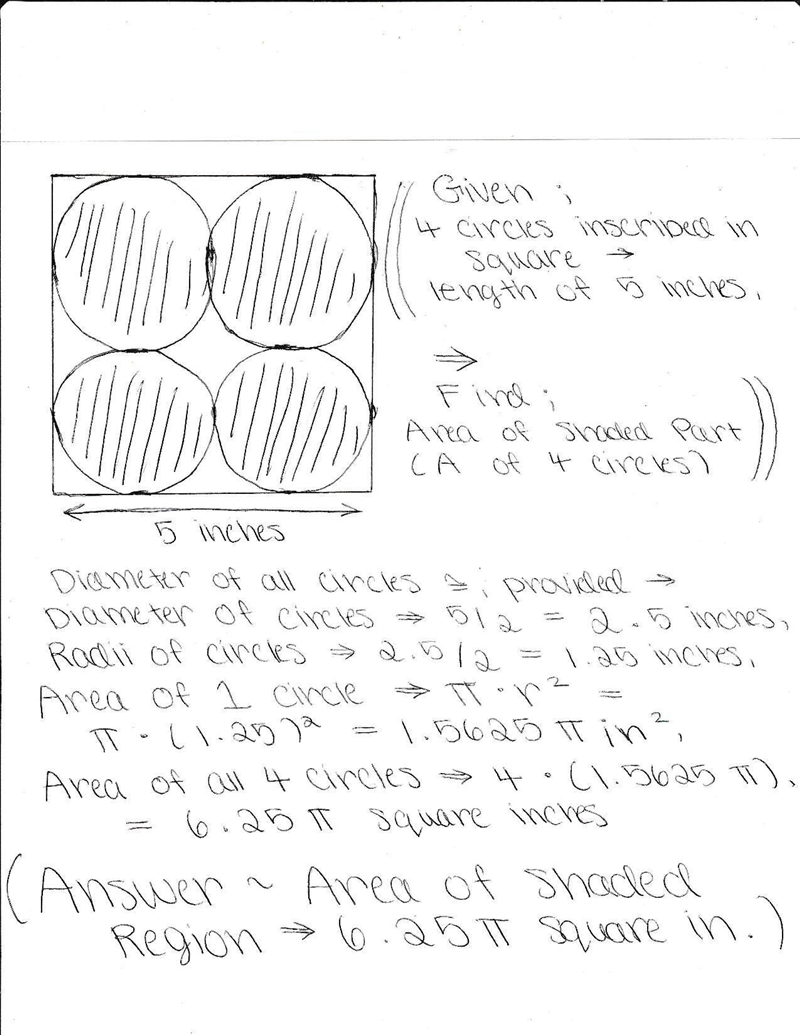 Given ;
4 circles inscribed in
square →
length of 5 inches,
⇒
Find ;
Area of Shaded Part
(A of 4 circles)
5 inches
Diameter of all circles ≅ ; provided →
Diameter of circles ⇒ 5/2 = 2.5 inches,
Radii of circles ⇒ 2.5/2 = 1.25 inches,
Area of 1 circle ⇒ π · r² =
π · (1.25)² = 1.5625 π in²,
Area of all 4 circles ⇒ 4 · (1.5625 π),
= 6.25 π square inches
(Answer ~ Area of Shaded
Region ⇒ 6.25 π square in.)